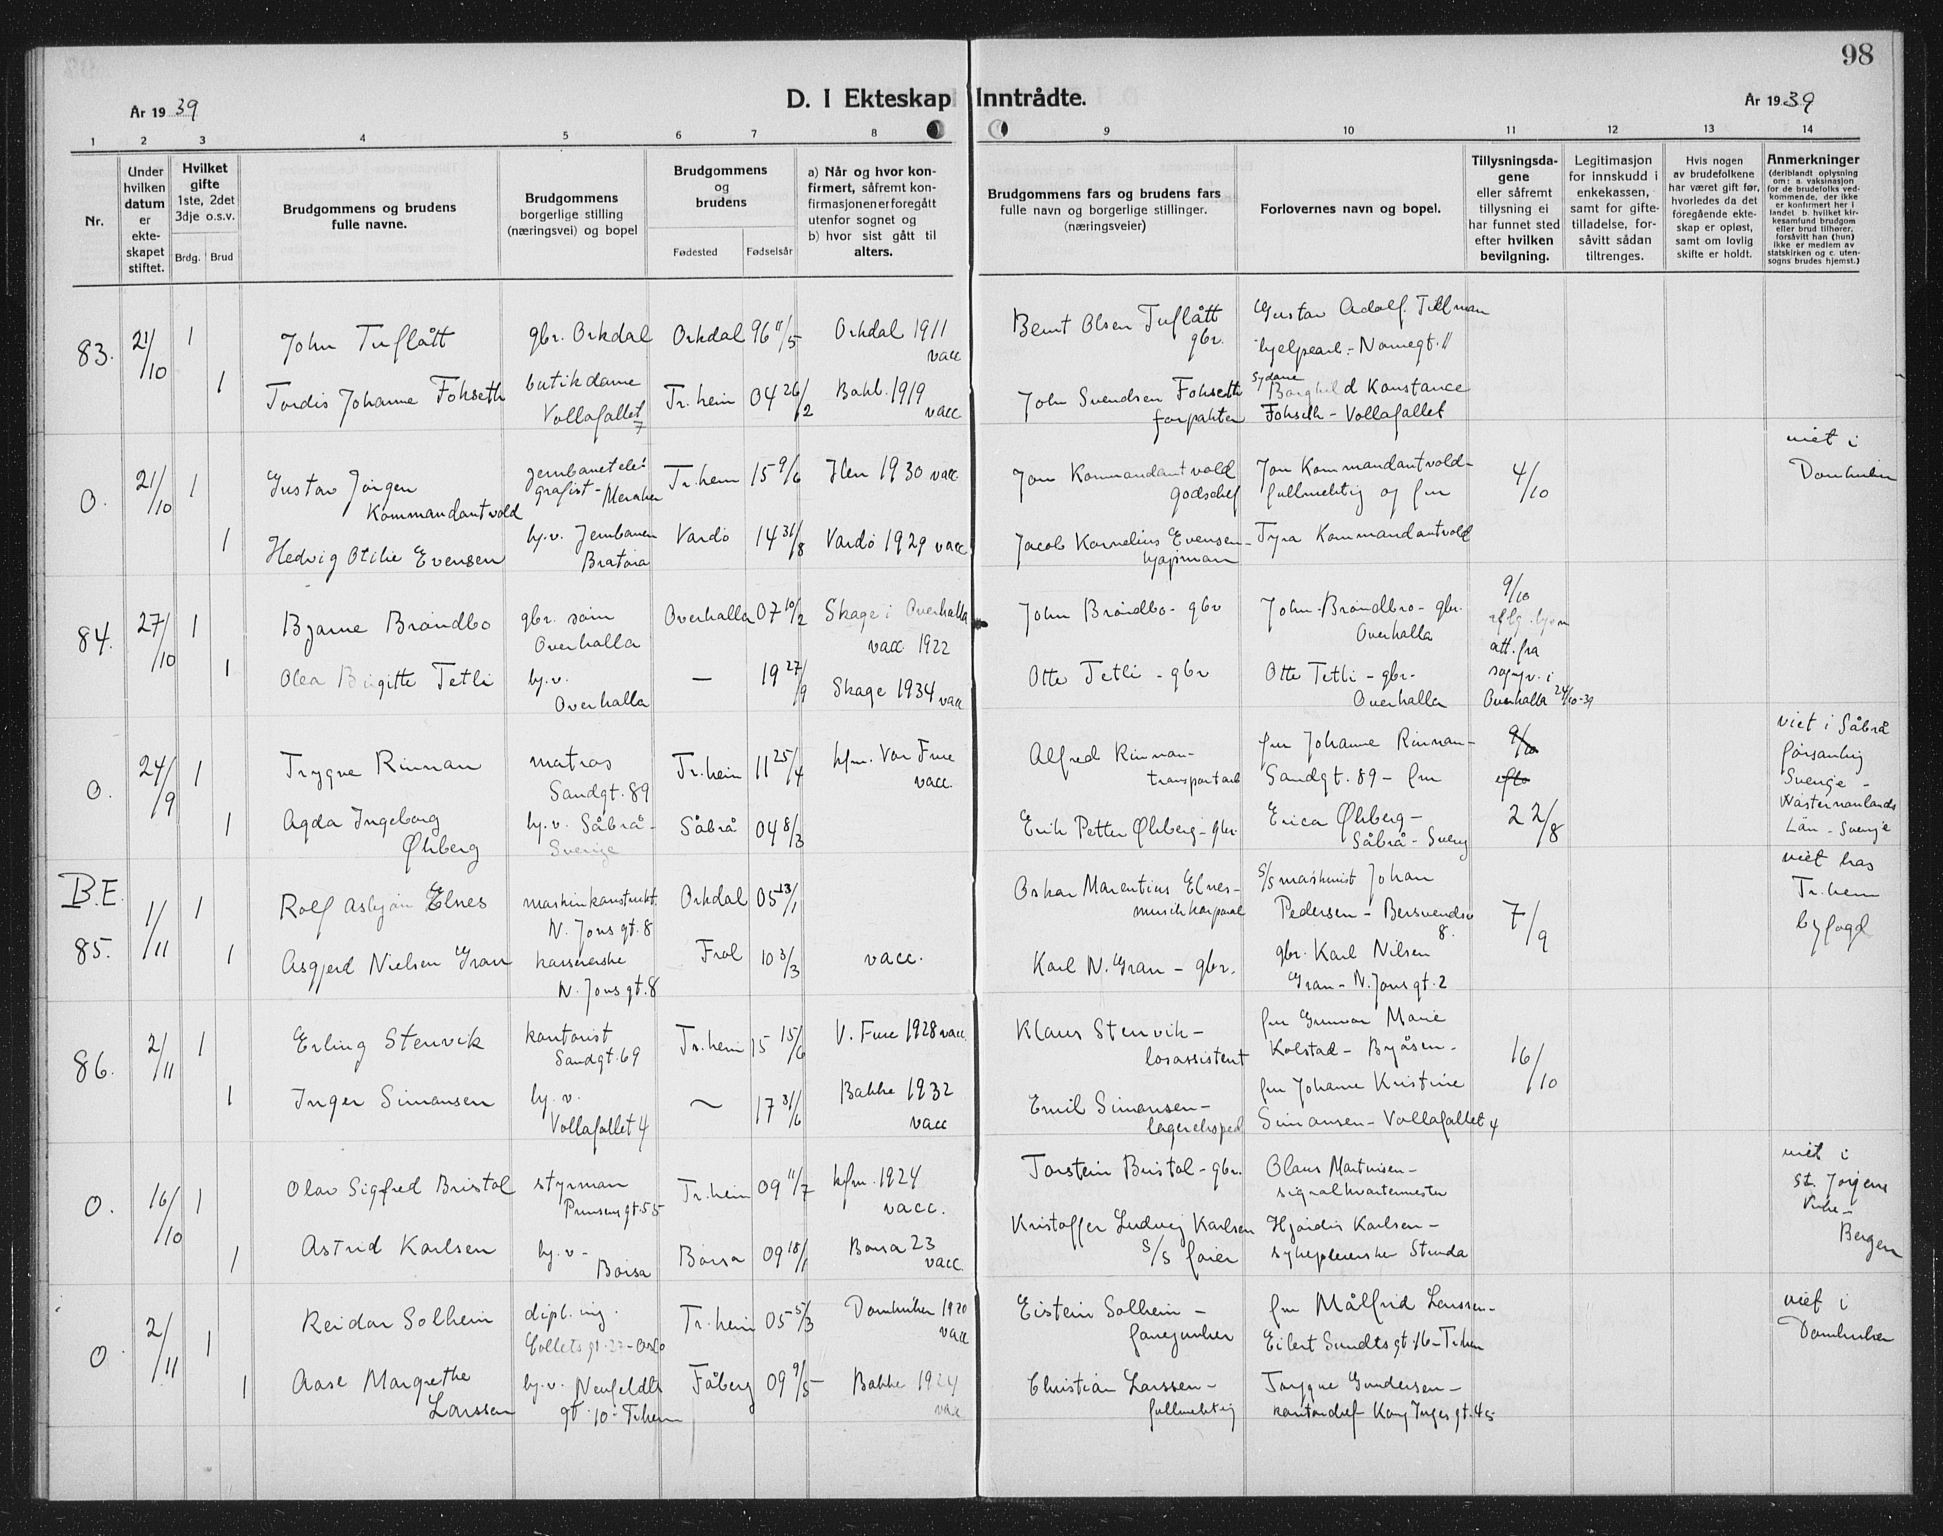 98
D. I Ekteskap Inntrådte.
År 1939
År 1939
1 2 3 4 5 6 7 8 9 10 11 12 13 14
Nr.
Under hvilken datum er ekteskapet stiftet.
Hvilket gifte 1ste, 2det 3dje o.s.v.
Brdg. Brud
Brudgommens og brudens fulle navne.
Brudgommens borgerlige stilling (næringsvei) og bopel
Brudgommens og brudens
Fødested Fødselsår
a) Når og hvor konfirmert, såfremt konfirmasjonen er foregått utenfor sognet og
b) hvor sist gått til alters.
Brudgommens fars og brudens fars fulle navn og borgerlige stillinger. (næringsveier)
Forlovernes navn og bopel.
Tillysningsdagene eller såfremt tillysning ei har funnet sted efter hvilken bevilgning.
Legitimasjon for innskudd i enkekassen, samt for giftetilladelse, forsåvitt sådan tiltrenges.
Hvis nogen av brudefolkene har været gift før, hvorledes da det foregående ekteskap er opløst, samt om lovlig skifte er holdt.
Anmerkninger (deriblandt oplysning om: a. vaksinasjon for de brudefolks vedkommende, der ikke er konfirmert her i landet b. hvilket kirkesamfund brudgom eller brud tilhører, forsåvitt han (hun) ikke er medlem av statskirken og c. utensogns brudes hjemst.)
83. 21/10 1 John Tuflått gbr. Orkdal Orkdal 96 11/5 Orkdal 1911 vacc Bernt Olsen Tuflått gbr. Gustav Adolf Tillman hjelpearb.- Nonnegt. 11
1 Tordis Johanne Fohseth butikdame Vollafallet 7 Tr.heim 04 26/2 Bakl. 1919 vacc John Svendsen Fohseth forpakter sydame Borghild Konstance Fohseth - Vollafallet
O. 21/10 1 Gustav Jørgen Kommandantvold jernbanetelegrafist - Meraker Tr.heim 15 9/6 Ilen 1930 vacc Jon Kommandantvold godschef Jon Kommandantvold - fullmektig og fru 4/10 viet i Domkirken
1 Hedvig Otilie Evensen hj.v. Jernbanen Bratøra Vardø 14 31/8 Vardø 1929 vacc Jacob Kornelius Evensen - kjøpmann Tyra Kommandantvold
84. 27/10 1 Bjarne Brøndbo gbr. søn Overhalla Overhalla 07 10/2 Skage i Overhalla vacc. 1922 John Brøndbo - gbr John Brøndbo - gbr. Overhalla 9/10
att. fra sognpr. i Overhalla 24/10-39
1 Olea Birgitte Tetli hj.v. Overhalla — 19 27/9 Skage 1934 vacc Otte Tetli - gbr Otte Tetli - gbr. Overhalla
O. 24/9 1 Trygve Rinnan matros Sandgt. 89 Tr.heim 11 25/4 kfm. Vor Frue vacc. Alfred Rinnan - transportarb fru Johanne Rinnan - Sandgt. 89 - fru 9/10 viet i Såbrå församling Sverige - Västernorrlands Län - Sverige
1 Agda Ingeborg Öhberg hj.v. Såbrå - Sverige Såbrå 04 8/3 Erik Petter Öhberg - gbr. Erica Öhberg - Såbrå - Sverig 22/8
B.E.
85. 1/11 1 Rolf Asbjørn Elnes maskinkonstrukt. N. Jons gt. 8 Orkdal 05 13/1 Oskar Marentius Elnes - musikkorporal S/S maskinist Johan Pedersen - Bersvendsv 8. 7/9 viet hos Tr.heim byfogd
1 Asgjerd Nielsen Gran kassererske N. Jons gt. 8 Frol 10 3/3 vacc. Karl N. Gran - gbr. gbr. Karl Nilsen Gran - N. Jons gt. 2
86. 2/11 1 Erling Stenvik kontorist Sandgt. 69 Tr.heim 15 15/6 V. Frue 1928 vacc Klaus Stenvik - losassistent fru Gunvor Marie Kolstad - Byåsen - 16/10
1 Inger Simonsen hj.v. Vollafallet 4 — 17 31/6 Bakke 1932 vacc Emil Simonsen - lagereksped fru Johanne Kristine Simonsen - Vollafallet 4
O. 16/10 1 Olav Sigfred Bristol styrman Prinsensgt. 55 Tr.heim 09 11/7 kfm. 1924 vacc. Torstein Bristol - gbr. Olaus Martinsen - signalkvartermester viet i St. Jørgens Kirke - Bergen
1 Astrid Karlsen hj.v. - Børsa Børsa 09 18/1 Børsa 23 vacc. Kristoffer Ludvig Karlsen S/S fører Hjørdis Karlsen - sykepleierske
O 2/11 1 Reidar Solheim dipl. ing. Colletsgt. - Oslo Tr.heim 05 5/3 Domkirken 1920 vacc Eistein Solheim - fanejunker fru Målfrid Larssen - Eilert Sundtsgt. 16 - Tr.hem viet i Domkirken
1 Aase Margrethe Larssen hj.v. Neufeldts gt. 10 - Tr.hem Fåberg 09 9/5 Bakke 1924 vacc Christian Larssen - fullmektig Trygve Gundersen - kontorchef Kong Inges gt. 45